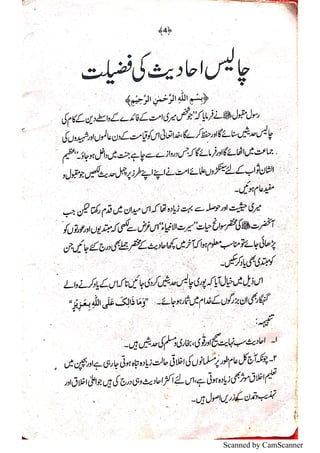 ﴿4﴾
چالیس احادیث کی فضیلت
﴿بِسْمِ اللّٰهِ الرَّحْمٰنِ الرَّحِيْمِ﴾
رسول مقبول ﷺ نے فرمایا کہ "جو شخص میری امت کے فائدے کے واسطے دین کے کام کی
چالیس حدیثیں سنائے گا اور حفظ کرے گا، خدا تعالیٰ اس کو قیامت کے دن عالموں اور شہیدوں کی
جماعت میں اٹھائے گا اور فرمائے گا کہ جس دروازے سے چاہے جنت میں داخل ہو جاؤ۔" عظیم
الشان ثواب کے لیے سینکڑوں علمائے امت نے اپنے اپنے طرز پر چہل حدیث لکھیں جو مقبول و
مفید عام ہوئیں۔
میری حیثیت اور حوصلہ سے بہت زیادہ تھا کہ اس میدان میں قدم رکھتا لیکن جب
آنحضرت ﷺ کی مختصر سوانح حیات "سیرت خاتم الانبیاء" اس غرض سے لکھی کہ مبتدیوں اور عورتوں کو
پڑھائی جائے تو مناسب معلوم ہوا کہ آخر میں کچھ احادیث کے مختصر جملے بھی درج کئے جائیں جن
کو مبتدی بھی یاد کر سکیں۔
اس ذیل میں خیال آیا کہ پوری چالیس حدیثیں کر دی جائیں تاکہ اس کے یاد کرنے والے
گنہگار بھی ان بزرگوں کے خدام میں شمار ہو جائے۔ "وَمَا ذَالِكَ عَلَى اللّٰهِ بِعَزِيْزٌ"
تنبیہہ:
۱۔ احادیث سب نہایت صحیح اور قوی، بخاری و مسلم کی حدیثیں ہیں۔
۲۔ چونکہ آج کل عام طور پر مسلمانوں کی اخلاقی حالت زیادہ تباہ ہوتی جا رہی ہے اور بچپن میں
تعلیم اخلاق مؤثر بھی زیادہ ہوتی ہے، اس لئے اکثر احادیث وہی درج کی ہیں جو اعلیٰ اخلاق اور
تہذیب و تمدن کے زریں اصول ہیں۔
Scanned by CamScanner